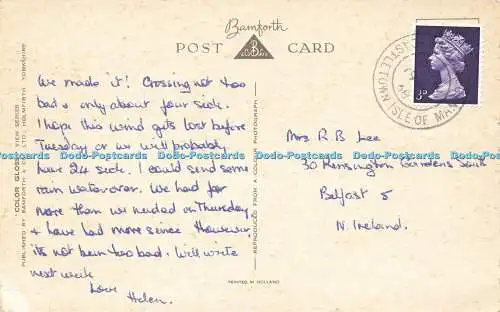 Bamforth
POST CARD
We made it! Crossing not too
bad & only about four sick.
I hope this wind gets lost before
Tuesday or we will probably
have 24 sick. I could send some
rain water over. We had far
more than we needed on Thursday
& have had more since. However
it's not been too bad. Will write
next week
Love
Helen.
"COLOR GLOSS" VIEW SERIES
PUBLISHED BY BAMFORTH & CO. LTD. HOLMFIRTH YORKSHIRE
REPRODUCED FROM A COLOUR PHOTOGRAPH
PRINTED IN HOLLAND
3D
CASTLETOWN ISLE OF MAN
Mrs R B Lee
30 Kensington Gardens South
Belfast 5
N. Ireland.
Dodo-Postcards Dodo-Postcards Dodo-Postcards Dodo-Postcards Dodo-Postcards Dodo-Postcards